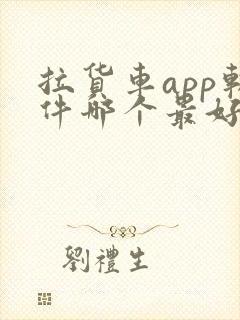 拉货車app
件哪个最好
劉禮生